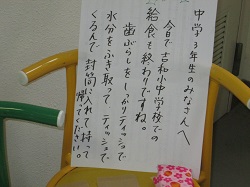 中学3年生のみなさんへ
今日で吉和小中学校での
給食も終わりですね。
歯ぶらしをしっかりティッシュで
水分をふき取って、ティッシュで
くるんで封筒に入れて持って
帰ってください。